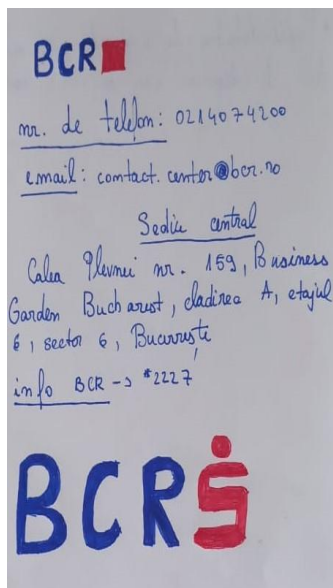 BCR
nr. de telefon: 0214074200
email: contact.center@bcr.ro
Sediu central
Calea Plevnei nr. 159, Business
Garden Bucharest, cladirea A, etajul
6, sector 6, București
info BCR -> *2227
BCR